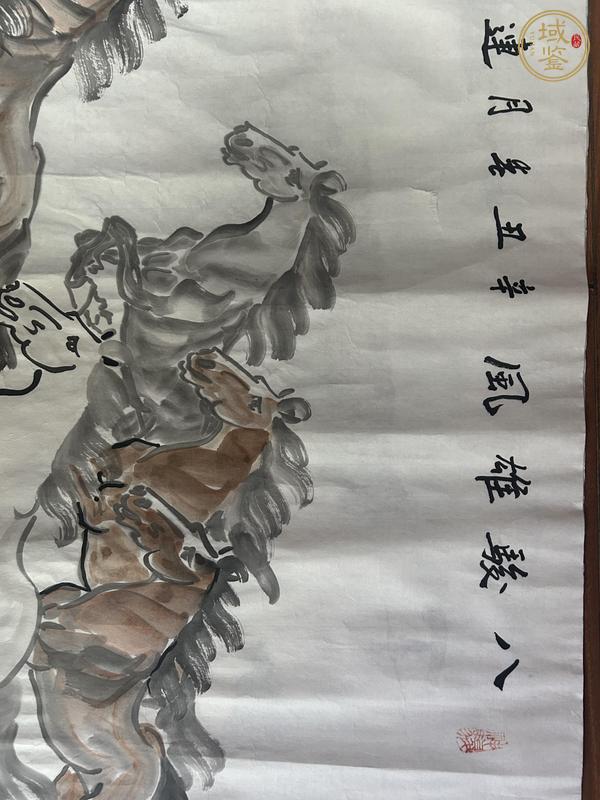 八駿雄風 辛丑冬月
域鉴